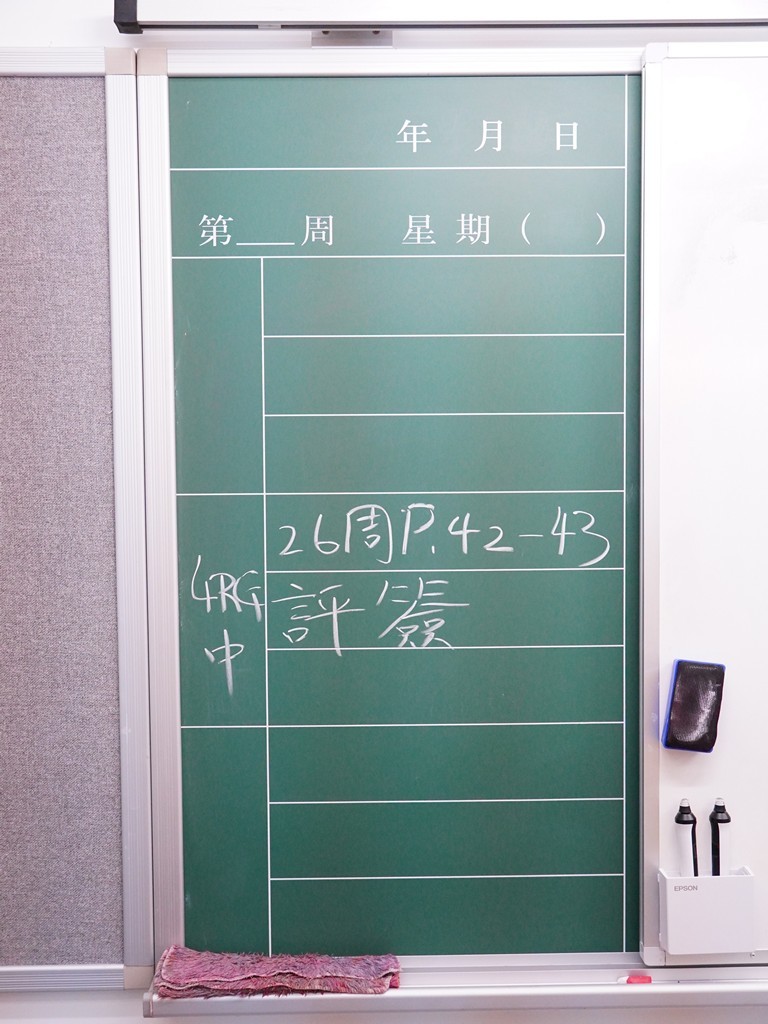 年 月 日
第___周 星期( )
26周P.42-43
4RG
評簽
中
EPSON